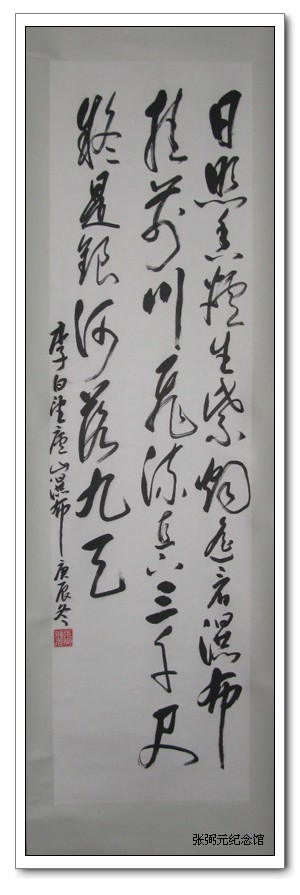 日照香炉生紫烟遥看瀑布
挂前川飞流直下三千尺
疑是银河落九天
李白望庐山瀑布 庚辰冬
张弼元纪念馆